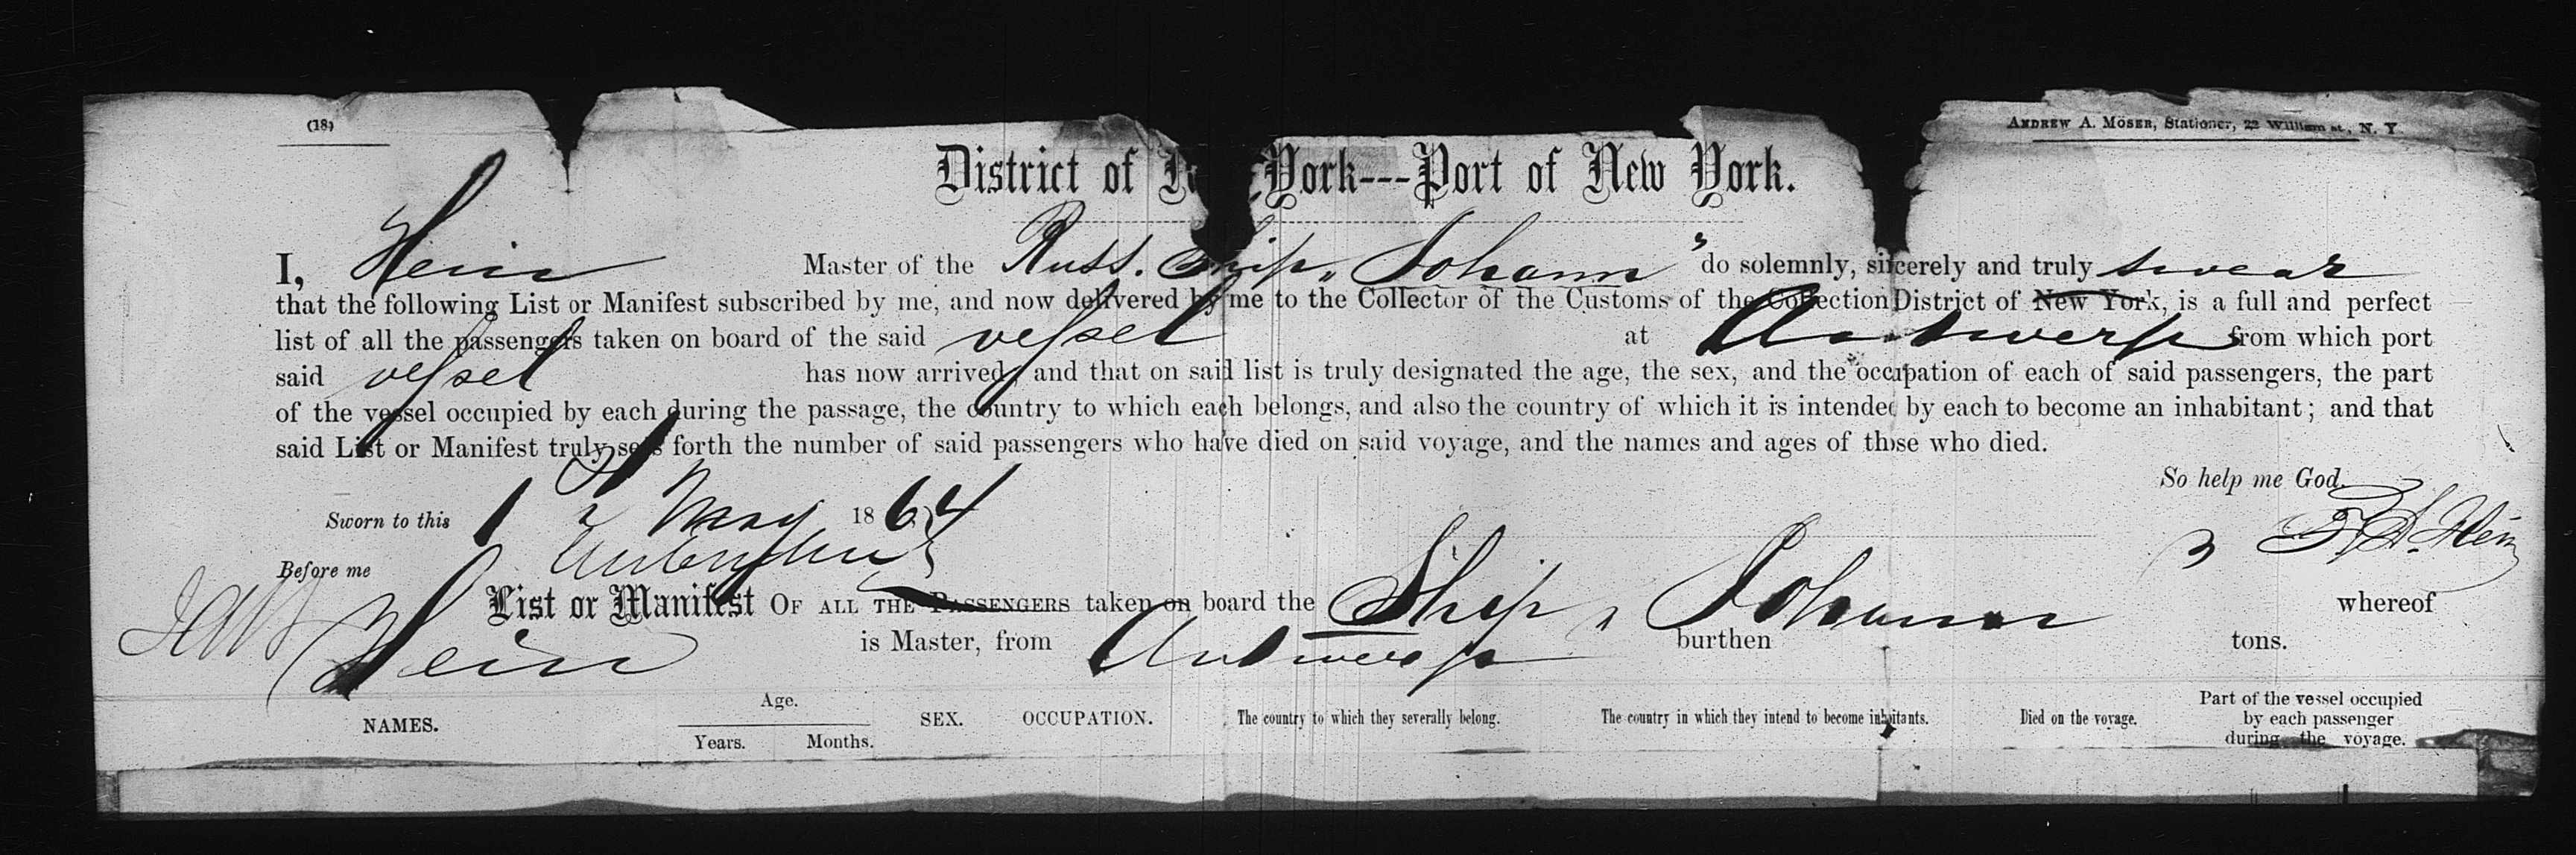 (18)
ANDREW A. MÖSER, Stationer, 22 William st., N. Y.
District of N York---Port of New York.
I, Hein Master of the Russ. Ship „Johann" do solemnly, sincerely and truly swear
that the following List or Manifest subscribed by me, and now delivered by me to the Collector of the Customs of the Collection District of New York, is a full and perfect
list of all the passengers taken on board of the said vessel at Antwerp from which port
said vessel has now arrived; and that on said list is truly designated the age, the sex, and the occupation of each of said passengers, the part
of the vessel occupied by each during the passage, the country to which each belongs, and also the country of which it is intended by each to become an inhabitant; and that
said List or Manifest truly sets forth the number of said passengers who have died on said voyage, and the names and ages of those who died.
So help me God.
Sworn to this May 1864
Hein
Before me
List or Manifest OF ALL THE PASSENGERS taken on board the Ship „Johann whereof
Hein is Master, from Antwerp burthen tons.
NAMES. Age. Years. Months. SEX. OCCUPATION. The country to which they severally belong. The country in which they intend to become inhabitants. Died on the voyage. Part of the vessel occupied by each passenger during the voyage.